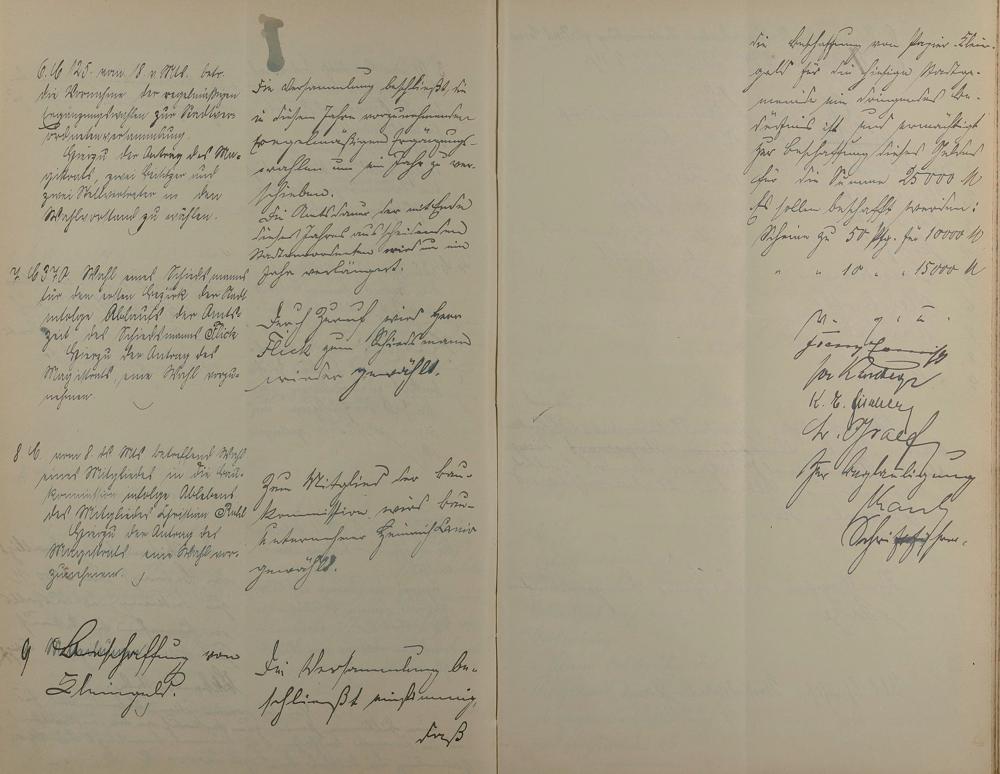 6. M 125. vom 18. v. Mts. betr.
die Vornahme der regelmäßigen
Ergänzungswahlen zur Stadtver-
ordnetenversammlung.
Hierzu der Antrag des Ma-
gistrats, zwei Beisitzer und
zwei Stellvertreter in den
Wahlvorstand zu wählen.
Die Versammlung beschließt, die
in diesem Jahre vorzunehmenden
regelmäßigen Ergänzungs-
wahlen um ein Jahr zu ver-
schieben.
Die Amtsdauer der mit Ende
dieses Jahres ausscheidenden
Stadtverordneten wird um ein
Jahr verlängert.
7. M 370 Wahl eines Schiedsmanns
für den ersten Bezirk der Stadt
infolge Ablaufs der Amts-
zeit des Schiedsmanns Flick
Hierzu der Antrag des
Magistrats, eine Wahl vorzu-
nehmen.
Durch Zuruf wird Herr
Flick zum Schiedsmann
wieder gewählt.
8 M. vom 8. ds Mts betreffend Wahl
eines Mitgliedes in die Bau-
kommission infolge Ablebens
des Mitgliedes Christian
Hierzu der Antrag des
Magistrats eine Wahl vor-
zunehmen.
Zum Mitglied der Bau-
kommission wird Bau-
unternehmer Heinrich
gewählt.
9 Beschaffung von
Kleingeld.
Die Versammlung be-
schließt einstimmig,
daß
die Beschaffung von Papier-Klein-
geld für die hiesige Stadtge-
meinde ein dringendes Be-
dürfnis ist und ermächtigt
zur Beschaffung dieses Geldes
für die Summe 25000 M
Es sollen beschafft werden:
Scheine zu 50 Pfg. für 10000 M
" " 10 " " 15000 M
v. g. u.
Zur Beglaubigung